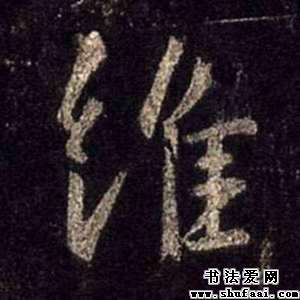 維
书法爱网
www.shufaai.com